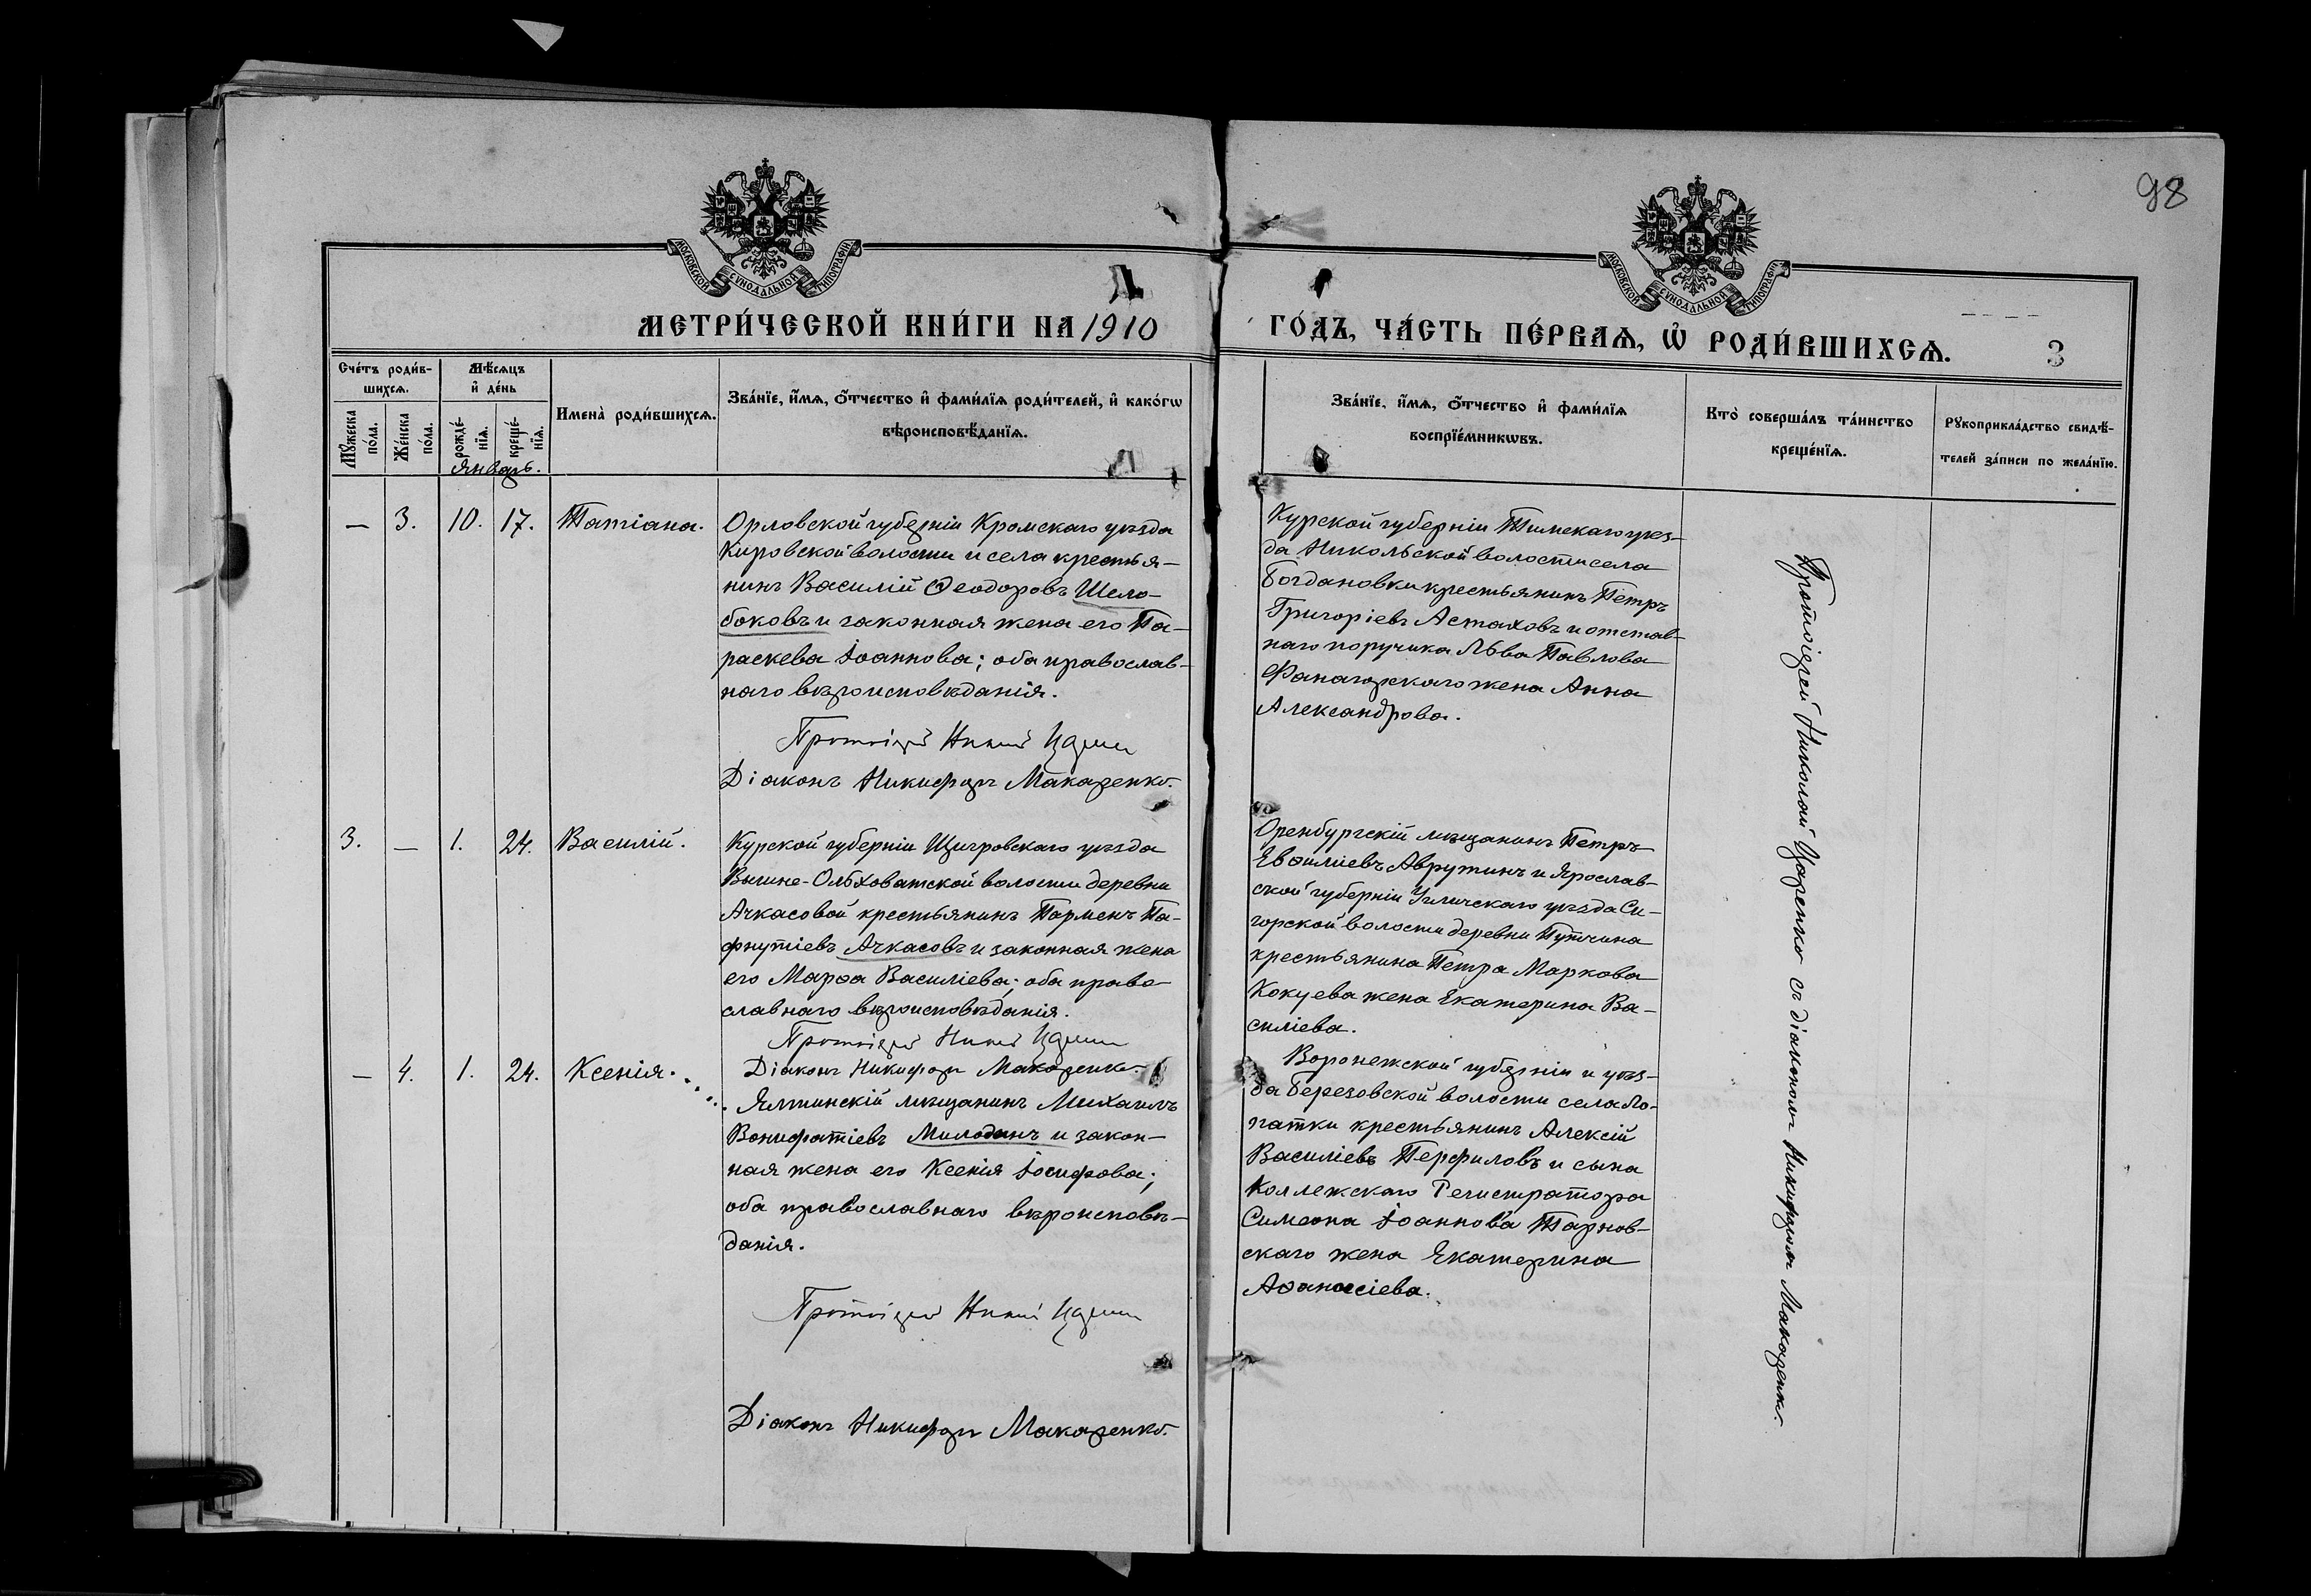 98
МОСКОВСКОЙ СУНОДАЛЬНОЙ ТИПОГРАФІИ
МОСКОВСКОЙ СУНОДАЛЬНОЙ ТИПОГРАФІИ
МЕТРИ́ЧЕСКОЙ КНИ́ГИ НА 1910
ГО́ДЪ, ЧА́СТЬ ПЕ́РВАѦ, Ѡ РОДИ́ВШИХСѦ.
3
Сче́тъ роди́в-
шихсѧ.
Мѣ́сѧцъ
и҆ де́нь
Мꙋ́жеска
по́ла.
Же́нска
по́ла.
рожде́-
нїѧ.
креще́-
нїѧ.
Январь.
Имена̀ роди́вшихсѧ.
Зва́нїе, и҆́мѧ, ѻ҆́тчество и҆ фами́лїѧ роди́телей, и҆ како́гѡ
вѣроисповѣ́данїѧ.
Зва́нїе, и҆́мѧ, ѻ҆́тчество и҆ фами́лїѧ
воспрїе́мникѡвъ.
Кто̀ соверша́лъ та́инство
креще́нїѧ.
Рꙋкоприкла́дство свидѣ́-
телей за́писи по жела́нїю.
— 3. 10. 17. Татіана.
Орловской губерніи Кромскаго уѣзда
Кировской волости и села крестья-
нинъ Василій Ѳеодоровъ Шело-
боковъ и законная жена его Па-
раскева Іоаннова; оба православ-
наго вѣроисповѣданія.
Протоіерей
Діаконъ Никифоръ Макаренко.
Курской губерніи Тимскаго уѣз-
да Никольской волости села
Богдановки крестьянинъ Петръ
Григоріевъ Астаховъ и отстав-
наго поручика Льва Павлова
Фанагорскаго жена Анна
Александрова.
3. — 1. 24. Василій.
Курской губерніи Щигровскаго уѣзда
Вышне-Ольховатской волости деревни
Ачкасовой крестьянинъ Парменъ Па-
фнутіевъ Ачкасовъ и законная жена
его Марѳа Василіева; оба право-
славнаго вѣроисповѣданія.
Протоіерей
Діаконъ Никифоръ Макаренко
Оренбургскій мѣщанинъ Петръ
Аврутинъ и Ярослав-
ской губерніи Угличскаго уѣзда Си-
горской волости деревни
крестьянина Петра Маркова
Кокуева жена Екатерина Ва-
силіева.
— 4. 1. 24. Ксенія.
Ялтинскій мѣщанинъ Михаилъ
Вонифатіевъ Милодинъ и закон-
ная жена его Ксенія Іосифова;
оба православнаго вѣроисповѣ-
данія.
Протоіерей
Діаконъ Никифоръ Макаренко.
Воронежской губерніи и уѣз-
да Березовской волости села Ло-
патки крестьянинъ Алексій
Василіевъ Перфиловъ и сына
Коллежскаго Регистратора
Симеона Іоаннова Тарнов-
скаго жена Екатерина
Аѳанасіева.
Протоіерей Николай Царенко съ діакономъ Никифоромъ Макаренко.